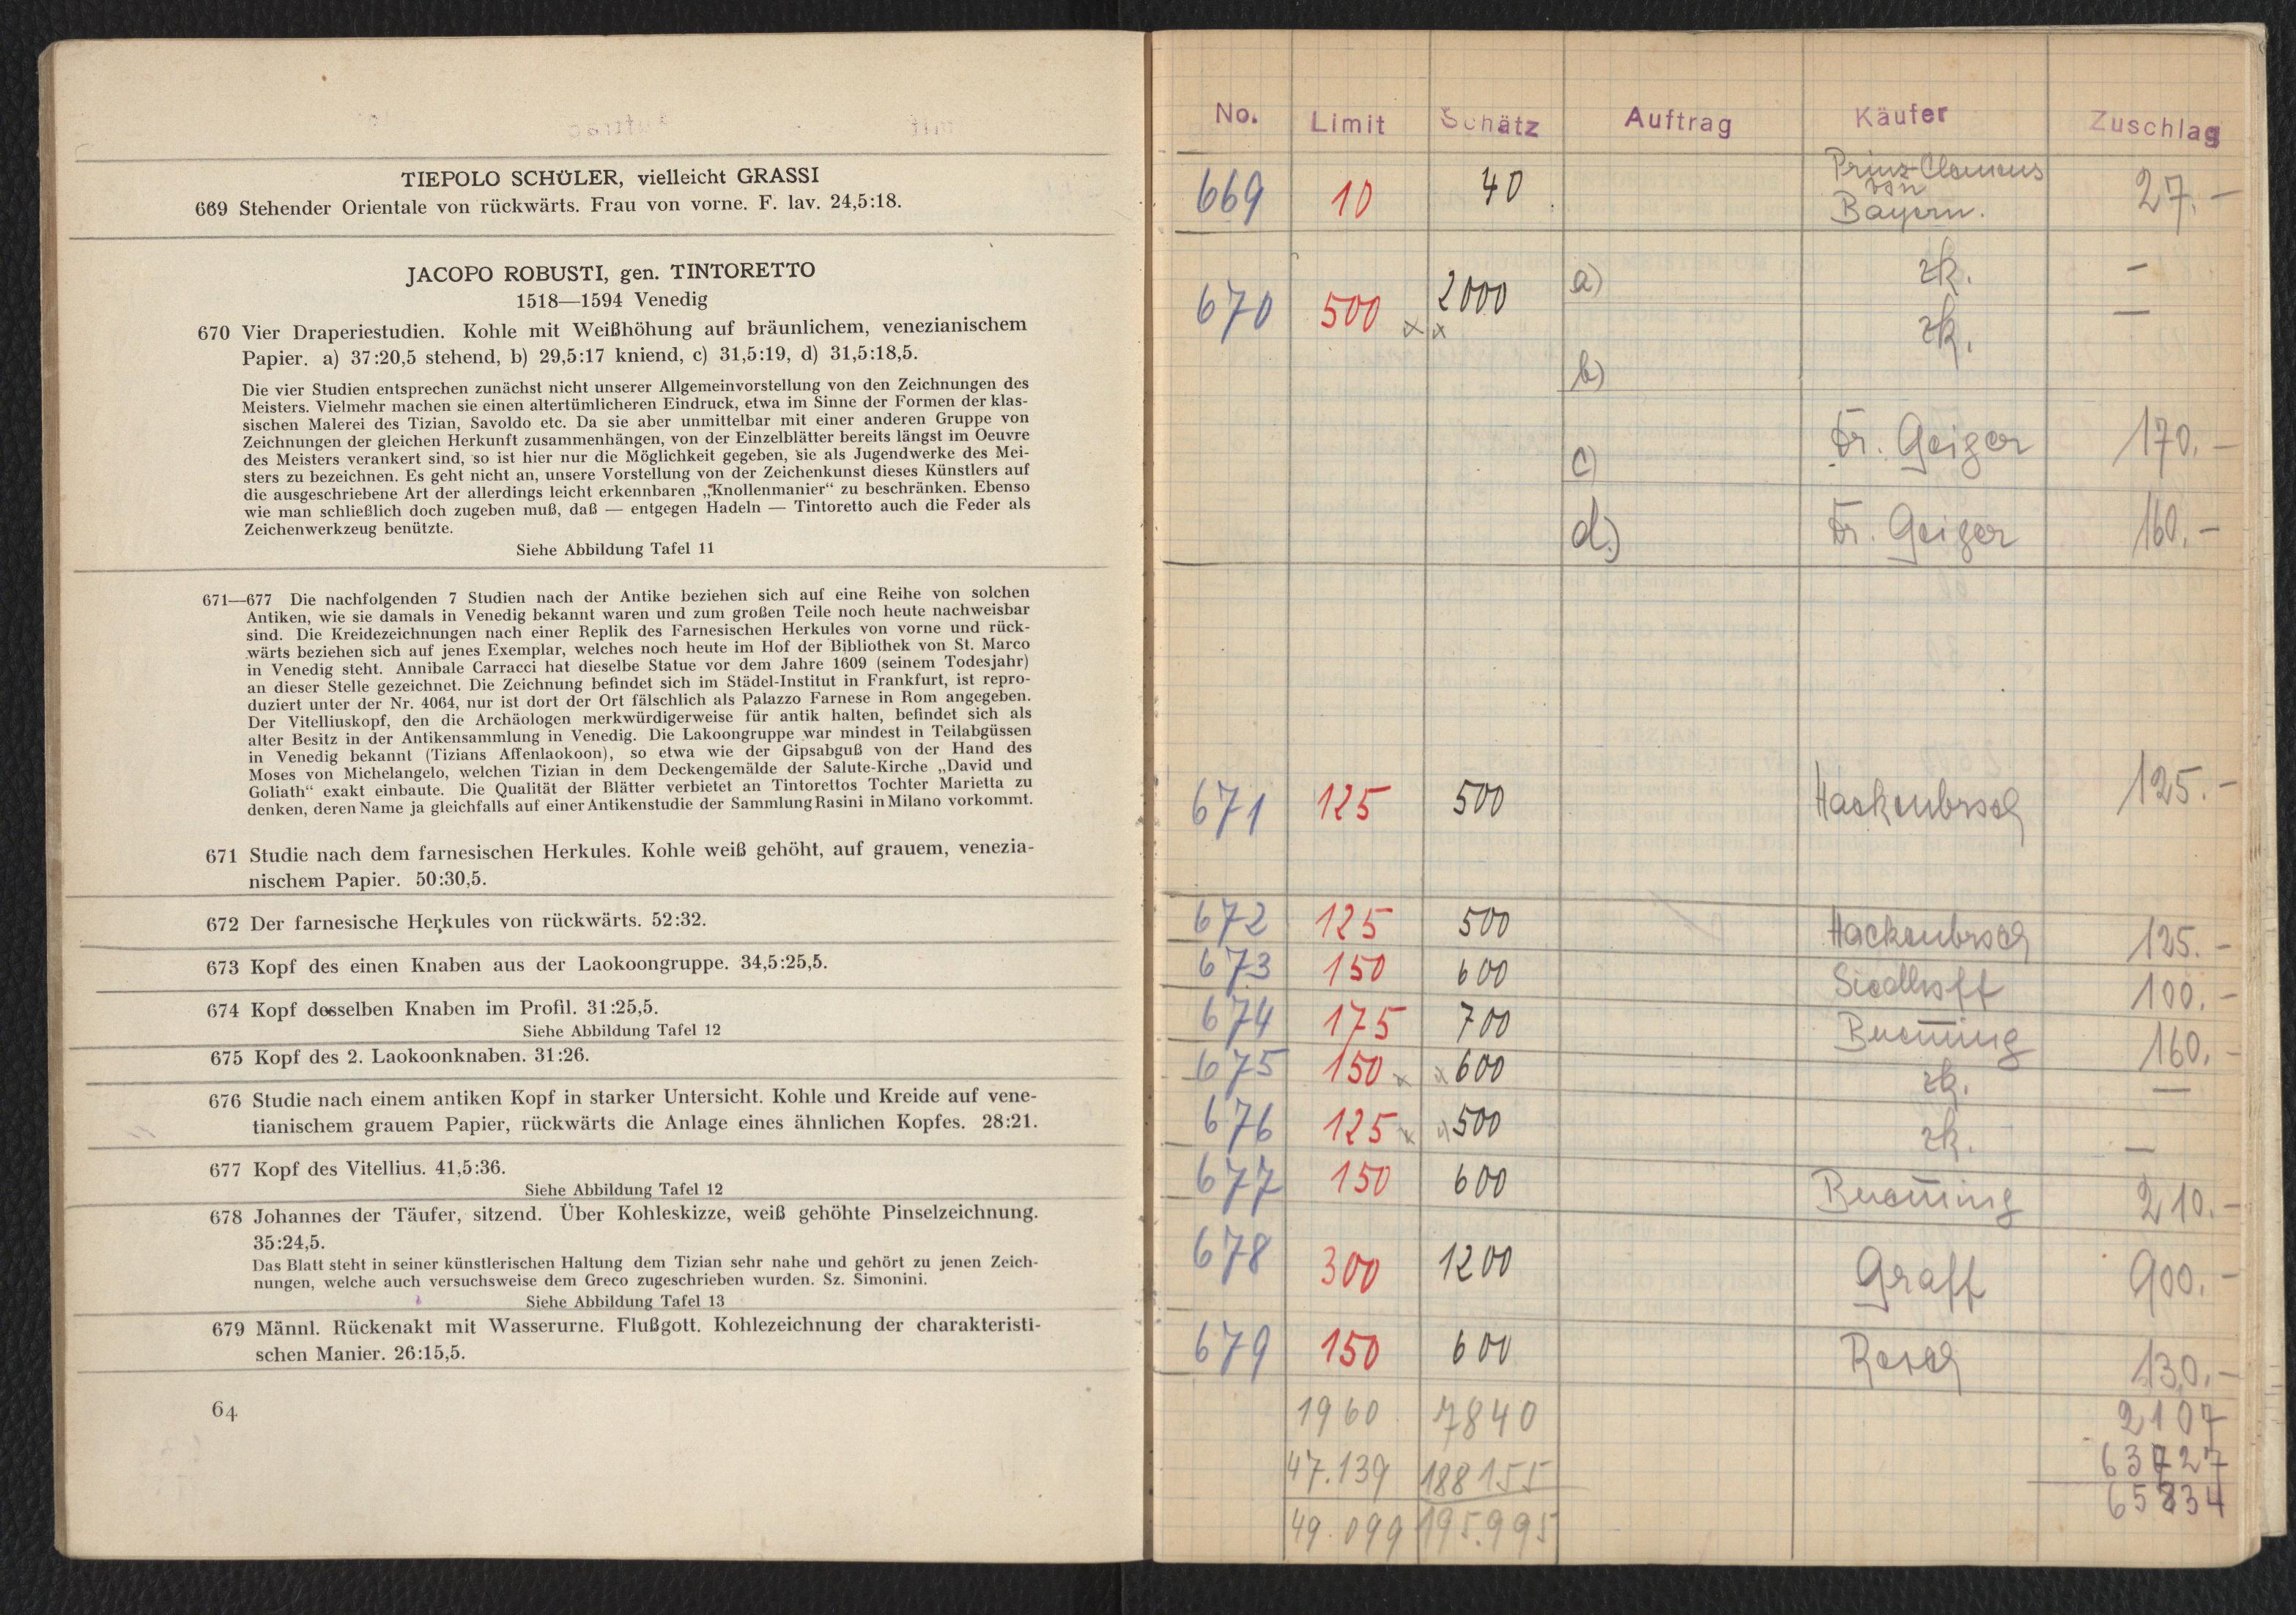 TIEPOLO SCHÜLER, vielleicht GRASSI
669 Stehender Orientale von rückwärts. Frau von vorne. F. lav. 24,5:18.
JACOPO ROBUSTI, gen. TINTORETTO
1518—1594 Venedig
670 Vier Draperiestudien. Kohle mit Weißhöhung auf bräunlichem, venezianischem
Papier. a) 37:20,5 stehend, b) 29,5:17 kniend, c) 31,5:19, d) 31,5:18,5.
Die vier Studien entsprechen zunächst nicht unserer Allgemeinvorstellung von den Zeichnungen des
Meisters. Vielmehr machen sie einen altertümlicheren Eindruck, etwa im Sinne der Formen der klas-
sischen Malerei des Tizian, Savoldo etc. Da sie aber unmittelbar mit einer anderen Gruppe von
Zeichnungen der gleichen Herkunft zusammenhängen, von der Einzelblätter bereits längst im Oeuvre
des Meisters verankert sind, so ist hier nur die Möglichkeit gegeben, sie als Jugendwerke des Mei-
sters zu bezeichnen. Es geht nicht an, unsere Vorstellung von der Zeichenkunst dieses Künstlers auf
die ausgeschriebene Art der allerdings leicht erkennbaren „Knollenmanier“ zu beschränken. Ebenso
wie man schließlich doch zugeben muß, daß — entgegen Hadeln — Tintoretto auch die Feder als
Zeichenwerkzeug benützte.
Siehe Abbildung Tafel 11
671—677 Die nachfolgenden 7 Studien nach der Antike beziehen sich auf eine Reihe von solchen
Antiken, wie sie damals in Venedig bekannt waren und zum großen Teile noch heute nachweisbar
sind. Die Kreidezeichnungen nach einer Replik des Farnesischen Herkules von vorne und rück-
wärts beziehen sich auf jenes Exemplar, welches noch heute im Hof der Bibliothek von St. Marco
in Venedig steht. Annibale Carracci hat dieselbe Statue vor dem Jahre 1609 (seinem Todesjahr)
an dieser Stelle gezeichnet. Die Zeichnung befindet sich im Städel-Institut in Frankfurt, ist repro-
duziert unter der Nr. 4064, nur ist dort der Ort fälschlich als Palazzo Farnese in Rom angegeben.
Der Vitelliuskopf, den die Archäologen merkwürdigerweise für antik halten, befindet sich als
alter Besitz in der Antikensammlung in Venedig. Die Lakoongruppe war mindest in Teilabgüssen
in Venedig bekannt (Tizians Affenlaokoon), so etwa wie der Gipsabguß von der Hand des
Moses von Michelangelo, welchen Tizian in dem Deckengemälde der Salute-Kirche „David und
Goliath“ exakt einbaute. Die Qualität der Blätter verbietet an Tintorettos Tochter Marietta zu
denken, deren Name ja gleichfalls auf einer Antikenstudie der Sammlung Rasini in Milano vorkommt.
671 Studie nach dem farnesischen Herkules. Kohle weiß gehöht, auf grauem, venezia-
nischem Papier. 50:30,5.
672 Der farnesische Herkules von rückwärts. 52:32.
673 Kopf des einen Knaben aus der Laokoongruppe. 34,5:25,5.
674 Kopf desselben Knaben im Profil. 31:25,5.
Siehe Abbildung Tafel 12
675 Kopf des 2. Laokoonknaben. 31:26.
676 Studie nach einem antiken Kopf in starker Untersicht. Kohle und Kreide auf vene-
tianischem grauem Papier, rückwärts die Anlage eines ähnlichen Kopfes. 28:21.
677 Kopf des Vitellius. 41,5:36.
Siehe Abbildung Tafel 12
678 Johannes der Täufer, sitzend. Über Kohleskizze, weiß gehöhte Pinselzeichnung.
35:24,5.
Das Blatt steht in seiner künstlerischen Haltung dem Tizian sehr nahe und gehört zu jenen Zeich-
nungen, welche auch versuchsweise dem Greco zugeschrieben wurden. Sz. Simonini.
Siehe Abbildung Tafel 13
679 Männl. Rückenakt mit Wasserurne. Flußgott. Kohlezeichnung der charakteristi-
schen Manier. 26:15,5.
64
No. Limit Schätz Auftrag Käufer Zuschlag
669 10 40 Prinz Clemens von Bayern. 27.–
670 500 x x 2000 a) zk. –
b) zk. –
c) Dr. Geiger 170.–
d) Dr. Geiger 160.–
671 125 500 Hackenbroch 125.–
672 125 500 Hackenbroch 125.–
673 150 600 Siedlhoff 100.–
674 175 700 160.–
675 150 x x 600 zk. –
676 125 x x 500 zk. –
677 150 600 210.–
678 300 1200 Graff 900.–
679 150 600 Rosch 130.–
1960 7840 2107
47.139 188155 63727
49.099 195.995 65834